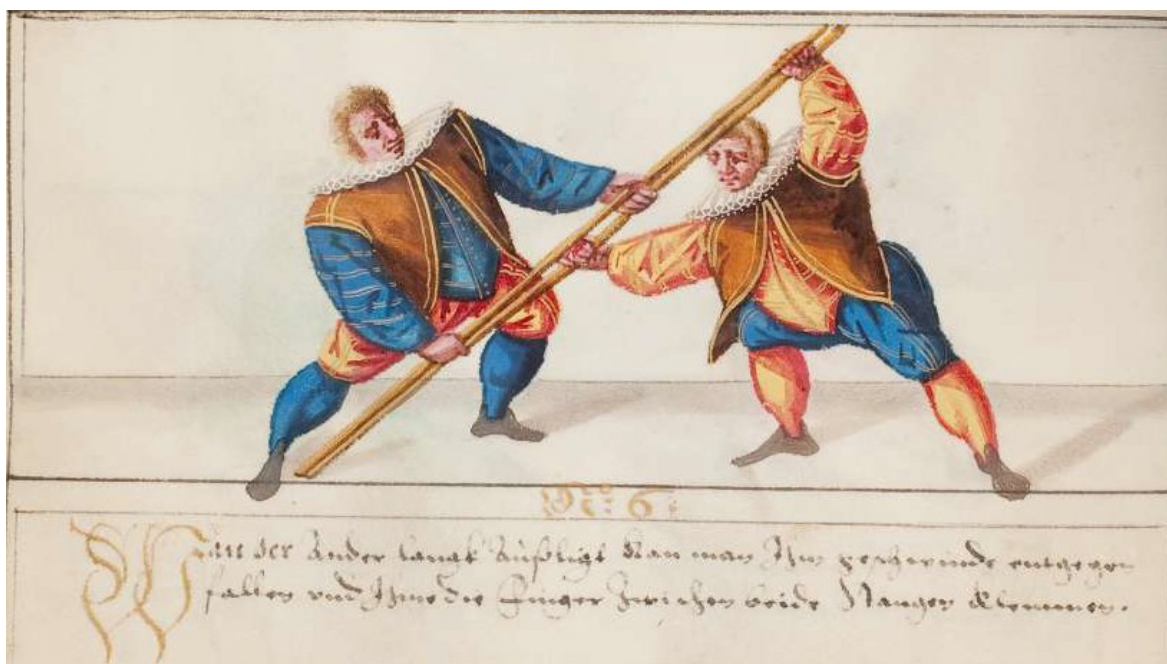 N⁰: 6.
Wan der Ander langk Außligt Kan man Ihm geschwinde entgegen
fallen vnd Ihme die Finger Zwischen beide Stangen Klemmen.